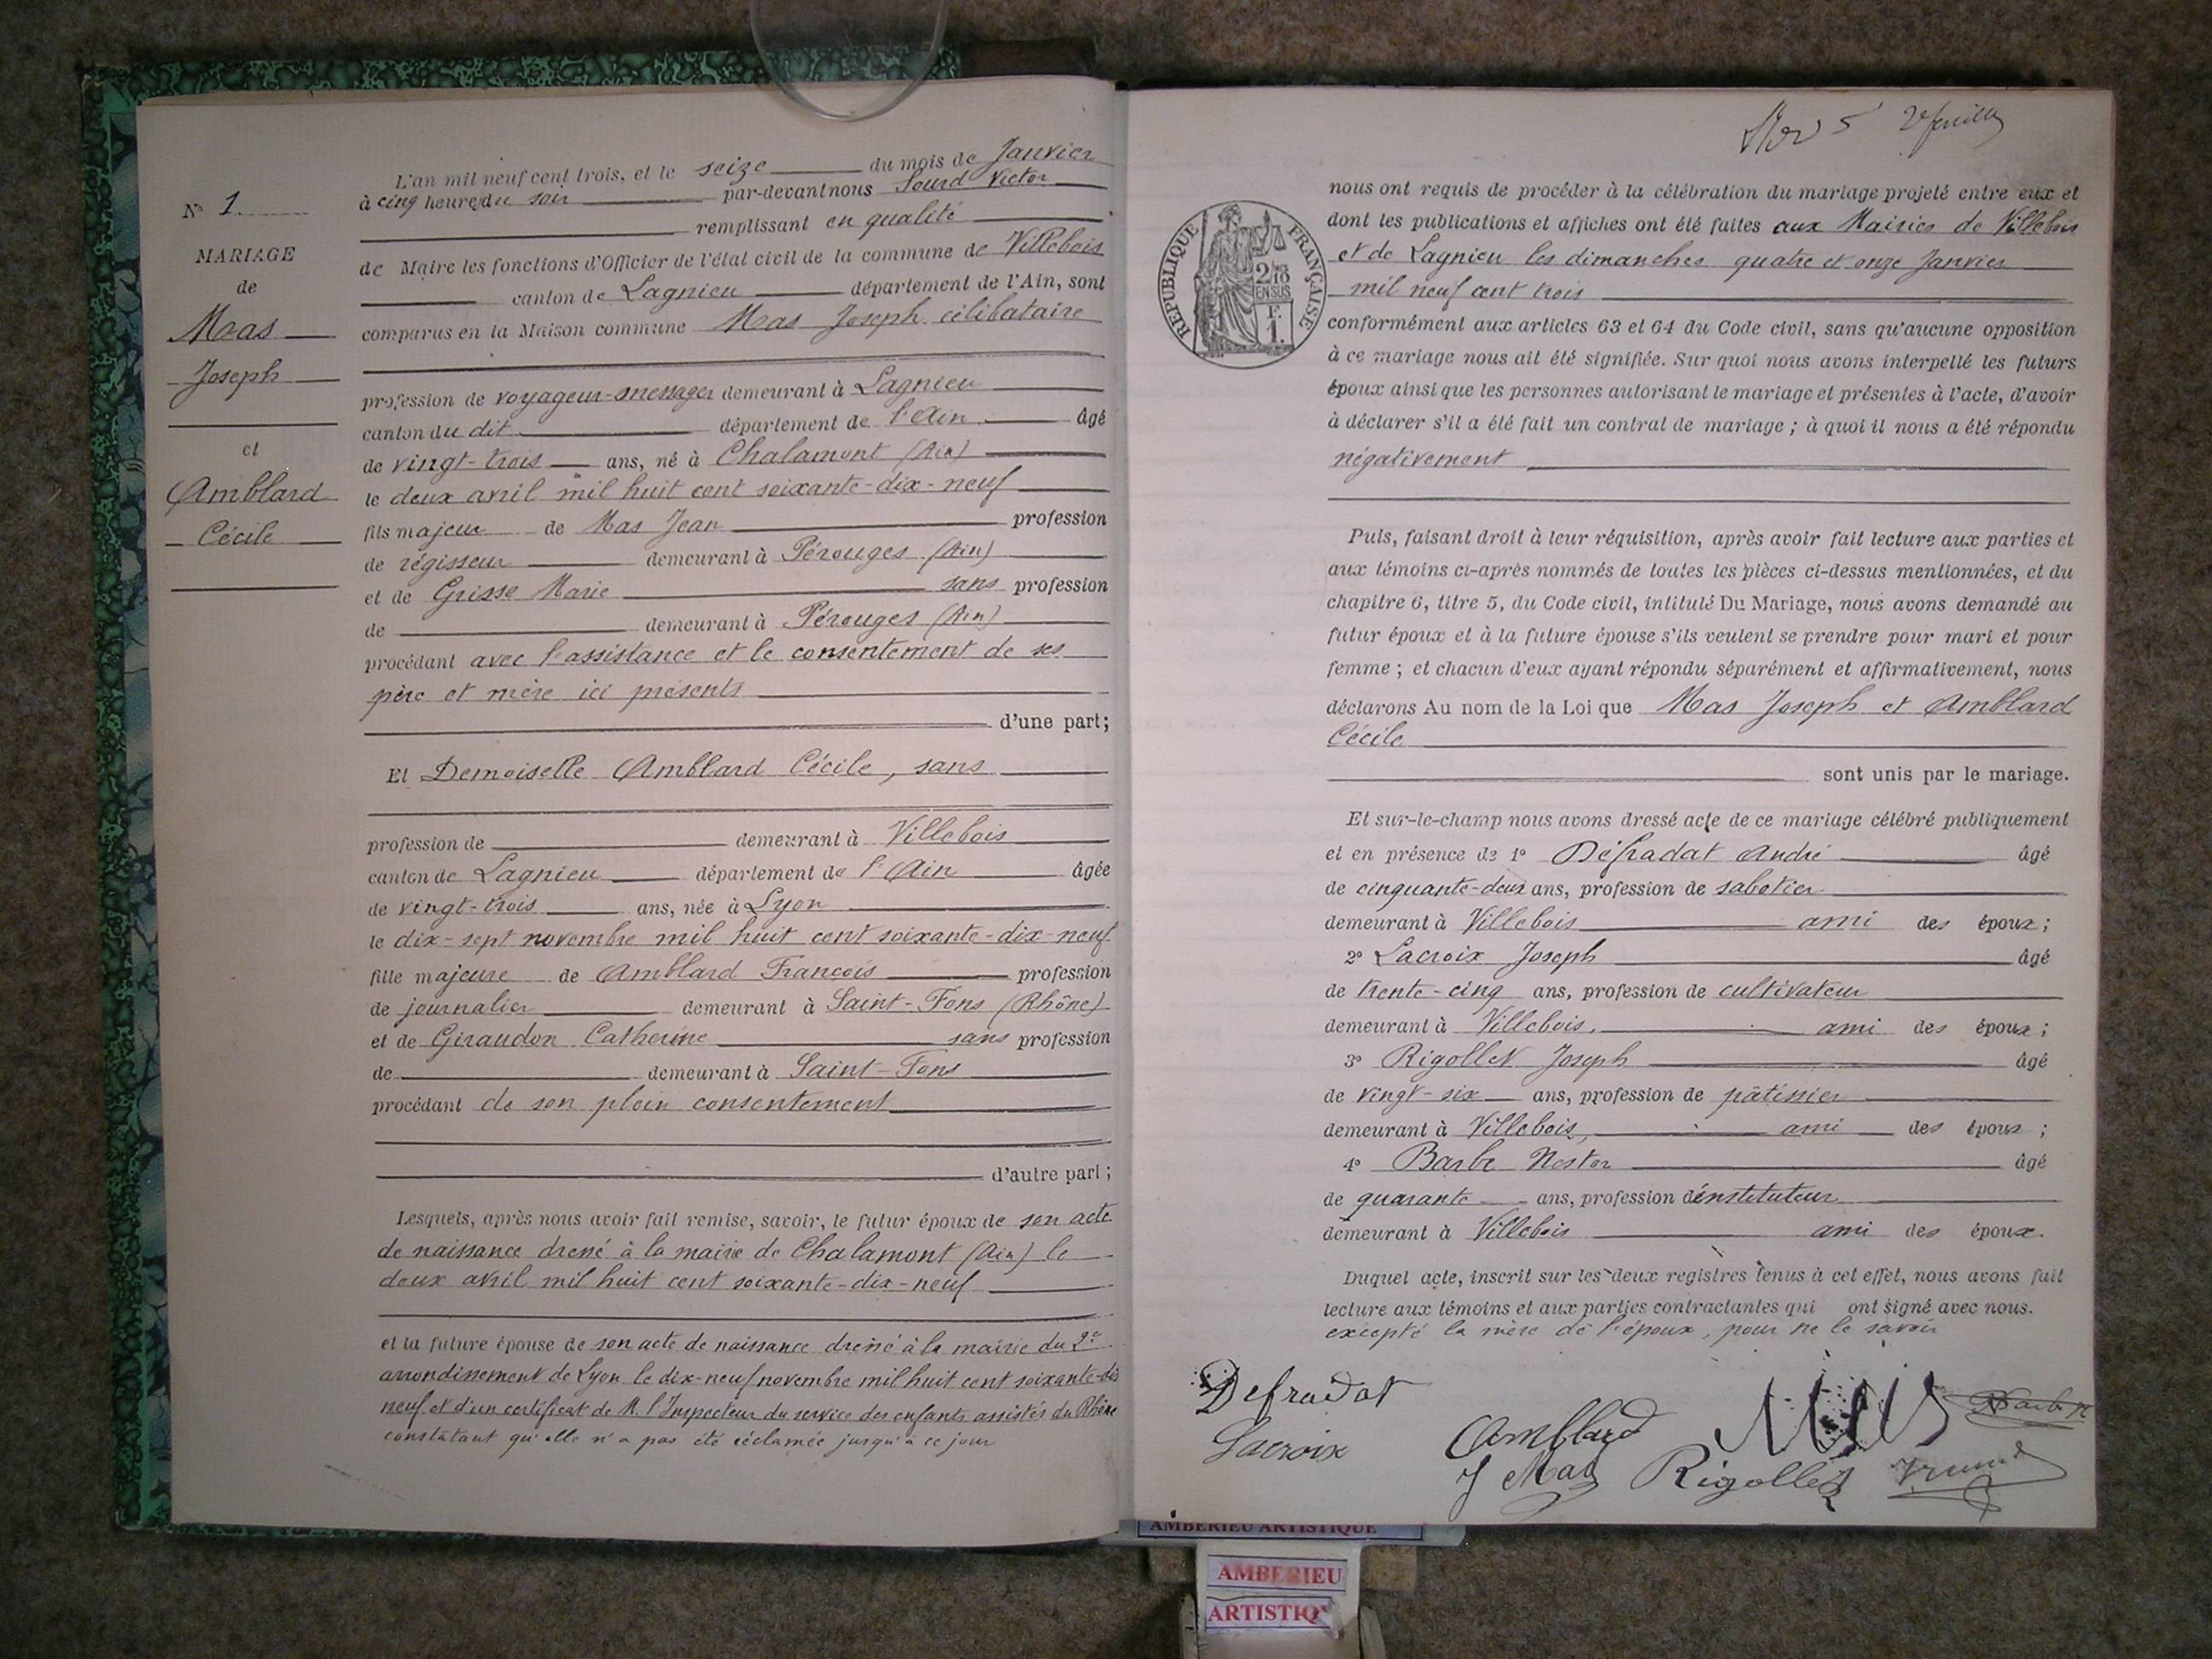 L'an mil neuf cent trois, et le seize du mois de Janvier
à cinq heures du soir par-devant nous Sourd Victor
remplissant en qualité
de Maire les fonctions d'Officier de l'état civil de la commune de Villebois
canton de Lagnieu département de l'Ain, sont
comparus en la Maison commune Mas Joseph célibataire
profession de voyageur-messager demeurant à Lagnieu
canton du dit département de l'Ain âgé
de vingt-trois ans, né à Chalamont (Ain)
le deux avril mil huit cent soixante-dix-neuf
fils majeur de Mas Jean profession
de régisseur demeurant à Pérouges (Ain)
et de Grisse Marie sans profession
de demeurant à Pérouges (Ain)
procédant avec l'assistance et le consentement de ses
père et mère ici présents
d'une part;
Et Demoiselle Amblard Cécile, sans
profession de demeurant à Villebois
canton de Lagnieu département de l'Ain âgée
de vingt-trois ans, née à Lyon
le dix-sept novembre mil huit cent soixante-dix-neuf
fille majeure de Amblard Francois profession
de journalier demeurant à Saint-Fons (Rhône)
et de Giraudon Catherine sans profession
de demeurant à Saint-Fons
procédant de son plein consentement
d'autre part;
Lesquels, après nous avoir fait remise, savoir, le futur époux de son acte
de naissance dressé à la mairie de Chalamont (Ain) le
deux avril mil huit cent soixante-dix-neuf
et la future épouse de son acte de naissance dressé à la mairie du 2e
arrondissement de Lyon le dix-neuf novembre mil huit cent soixante-dix
neuf et d'un certificat de M. l'Inspecteur du service des enfants assistés du Rhône
constatant qu'elle n'a pas été réclamée jusqu'à ce jour
N° 1.
MARIAGE
de
Mas
Joseph
et
Amblard
Cécile
5 2e feuille
RÉPUBLIQUE FRANÇAISE
2/10
EN SUS
F.
1.
nous ont requis de procéder à la célébration du mariage projeté entre eux et
dont les publications et affiches ont été faites aux Mairies de Villebois
et de Lagnieu les dimanches quatre et onze Janvier
mil neuf cent trois
conformément aux articles 63 et 64 du Code civil, sans qu'aucune opposition
à ce mariage nous ait été signifiée. Sur quoi nous avons interpellé les futurs
époux ainsi que les personnes autorisant le mariage et présentes à l'acte, d'avoir
à déclarer s'il a été fait un contrat de mariage ; à quoi il nous a été répondu
négativement
Puis, faisant droit à leur réquisition, après avoir fait lecture aux parties et
aux témoins ci-après nommés de toutes les pièces ci-dessus mentionnées, et du
chapitre 6, titre 5, du Code civil, intitulé Du Mariage, nous avons demandé au
futur époux et à la future épouse s'ils veulent se prendre pour mari et pour
femme ; et chacun d'eux ayant répondu séparément et affirmativement, nous
déclarons Au nom de la Loi que Mas Joseph et Amblard
Cécile
sont unis par le mariage.
Et sur-le-champ nous avons dressé acte de ce mariage célébré publiquement
et en présence de 1° Défradat André âgé
de cinquante-deux ans, profession de sabotier
demeurant à Villebois ami des époux;
2° Lacroix Joseph âgé
de trente-cinq ans, profession de cultivateur
demeurant à Villebois, ami des époux;
3° Rigollet Joseph âgé
de vingt-six ans, profession de pâtissier
demeurant à Villebois, ami des époux ;
4° Barbe Nestor âgé
de quarante ans, profession d'instituteur
demeurant à Villebois ami des époux.
Duquel acte, inscrit sur les deux registres tenus à cet effet, nous avons fait
lecture aux témoins et aux parties contractantes qui ont signé avec nous.
excepté la mère de l'époux, pour ne le savoir
Defradat
Lacroix
Amblard
J Mas
Mas
Rigollet
Barbe N
AMBERIEU ARTISTIQUE
AMBERIEU
ARTISTIQ